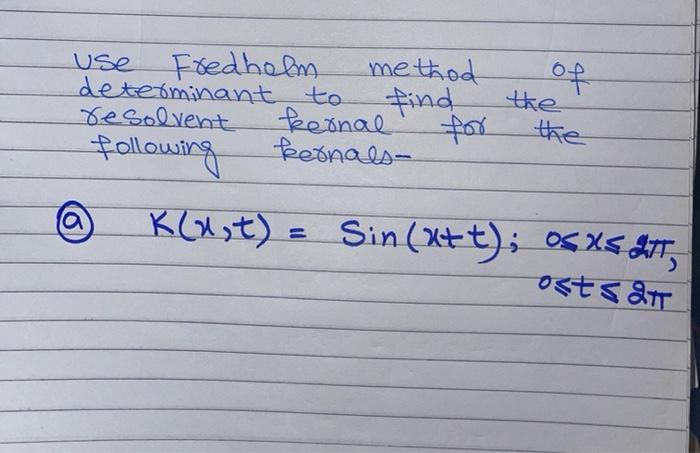 Use Fredholm method of
determinant to find the
resolvent kernal for the
following kernals-
(a) K(x,t) = Sin(x+t); 0≤x≤2π,
0≤t≤2π